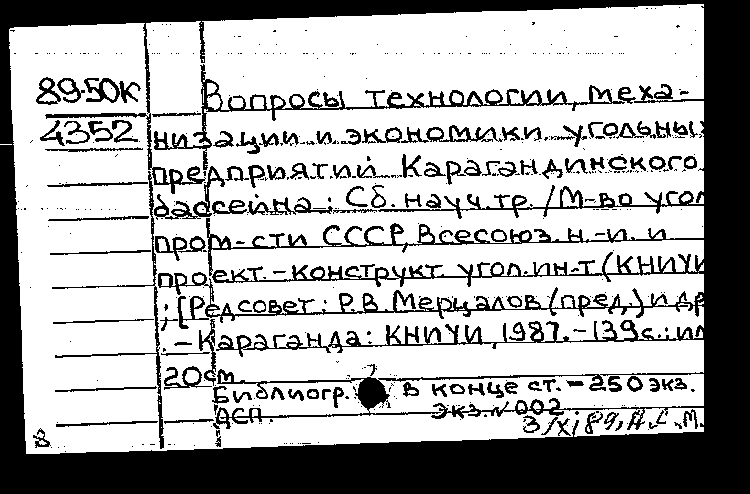 89-50К
4352
Вопросы технологии, меха-
низации и экономики угольных
предприятий Карагандинского
бассейна : Сб. науч. тр. / М-во угол
пром-сти СССР, Всесоюз. н.-и. и
проект.-конструкт. угол. ин-т (КНИУИ
; [Редсовет: Р.В. Мерцалов (пред.) и др
. - Караганда: КНИУИ, 1987. - 139 с. : ил
20 см.
Библиогр. в конце ст. - 250 экз.
АСП. Экз. N 002
3/XI 89, А.